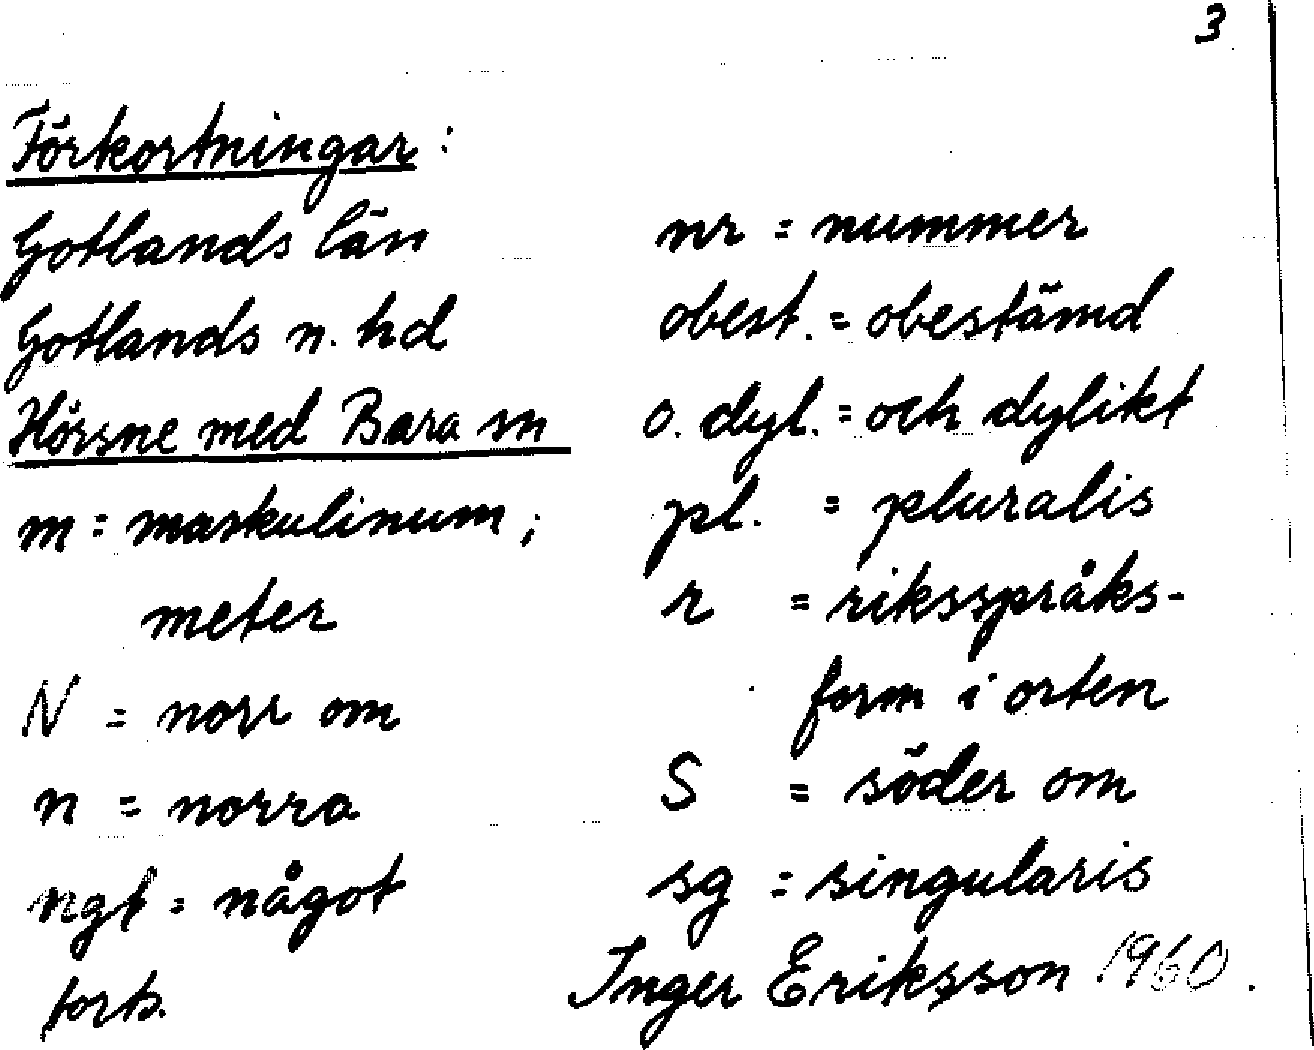 3
Förkortningar:
Gotlands län
Gotlands n. hd
Hörsne med Bara sn
m = maskulinum;
meter
N = norr om
n = norra
ngt = något
forts.
nr = nummer
obest. = obestämd
o. dyl. = och dylikt
pl. = pluralis
r = riksspråks-
form i orten
S = söder om
sg = singularis
Inger Eriksson 1960.